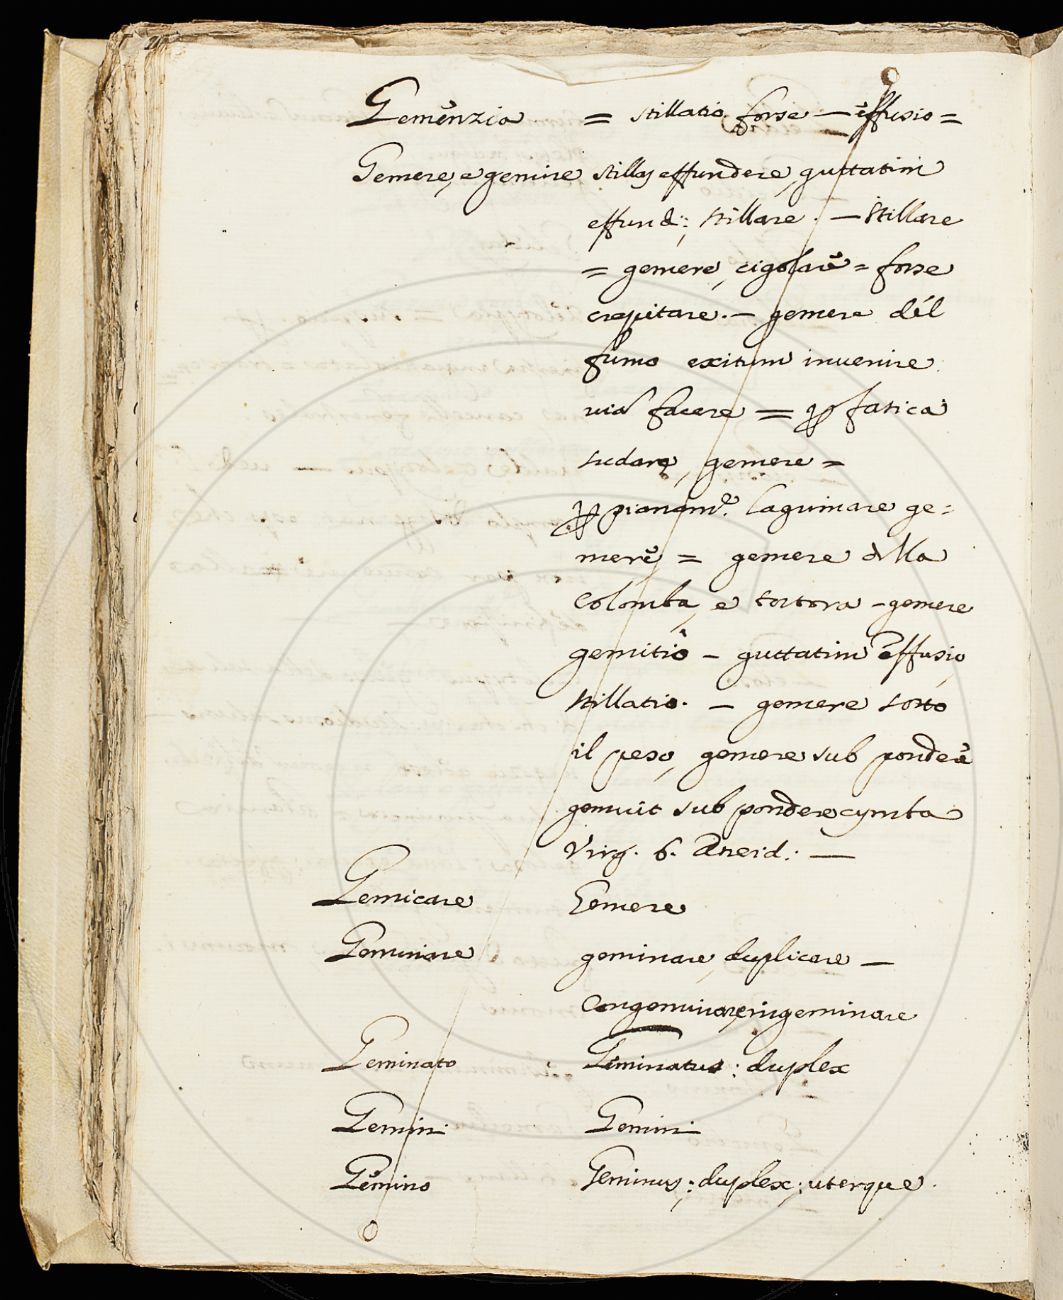 Gemenzia = stillatio forse — effusio =
Gemere, e gemire stillas effundere, guttatim
effund:; stillare. — stillare
= gemere, cigolare = forse
crepitare. — gemere del
fumo exitum invenire
viā facere = per fatica
sudare, gemere =
lagrimare ge=
mere = gemere della
colomba, e tortora - gemere
gemitio — guttatim effusio,
stillatio. — gemere sotto
il peso, gemere sub pondere
gemuit sub pondere cymba
Virg. 6. Aneid: —
Gemicare Gemere
Geminare geminare, duplicare —
congeminare, ingeminare
Geminato Geminatus: duplex
Gemini Gemini
Gemino Geminus; duplex; uterque.